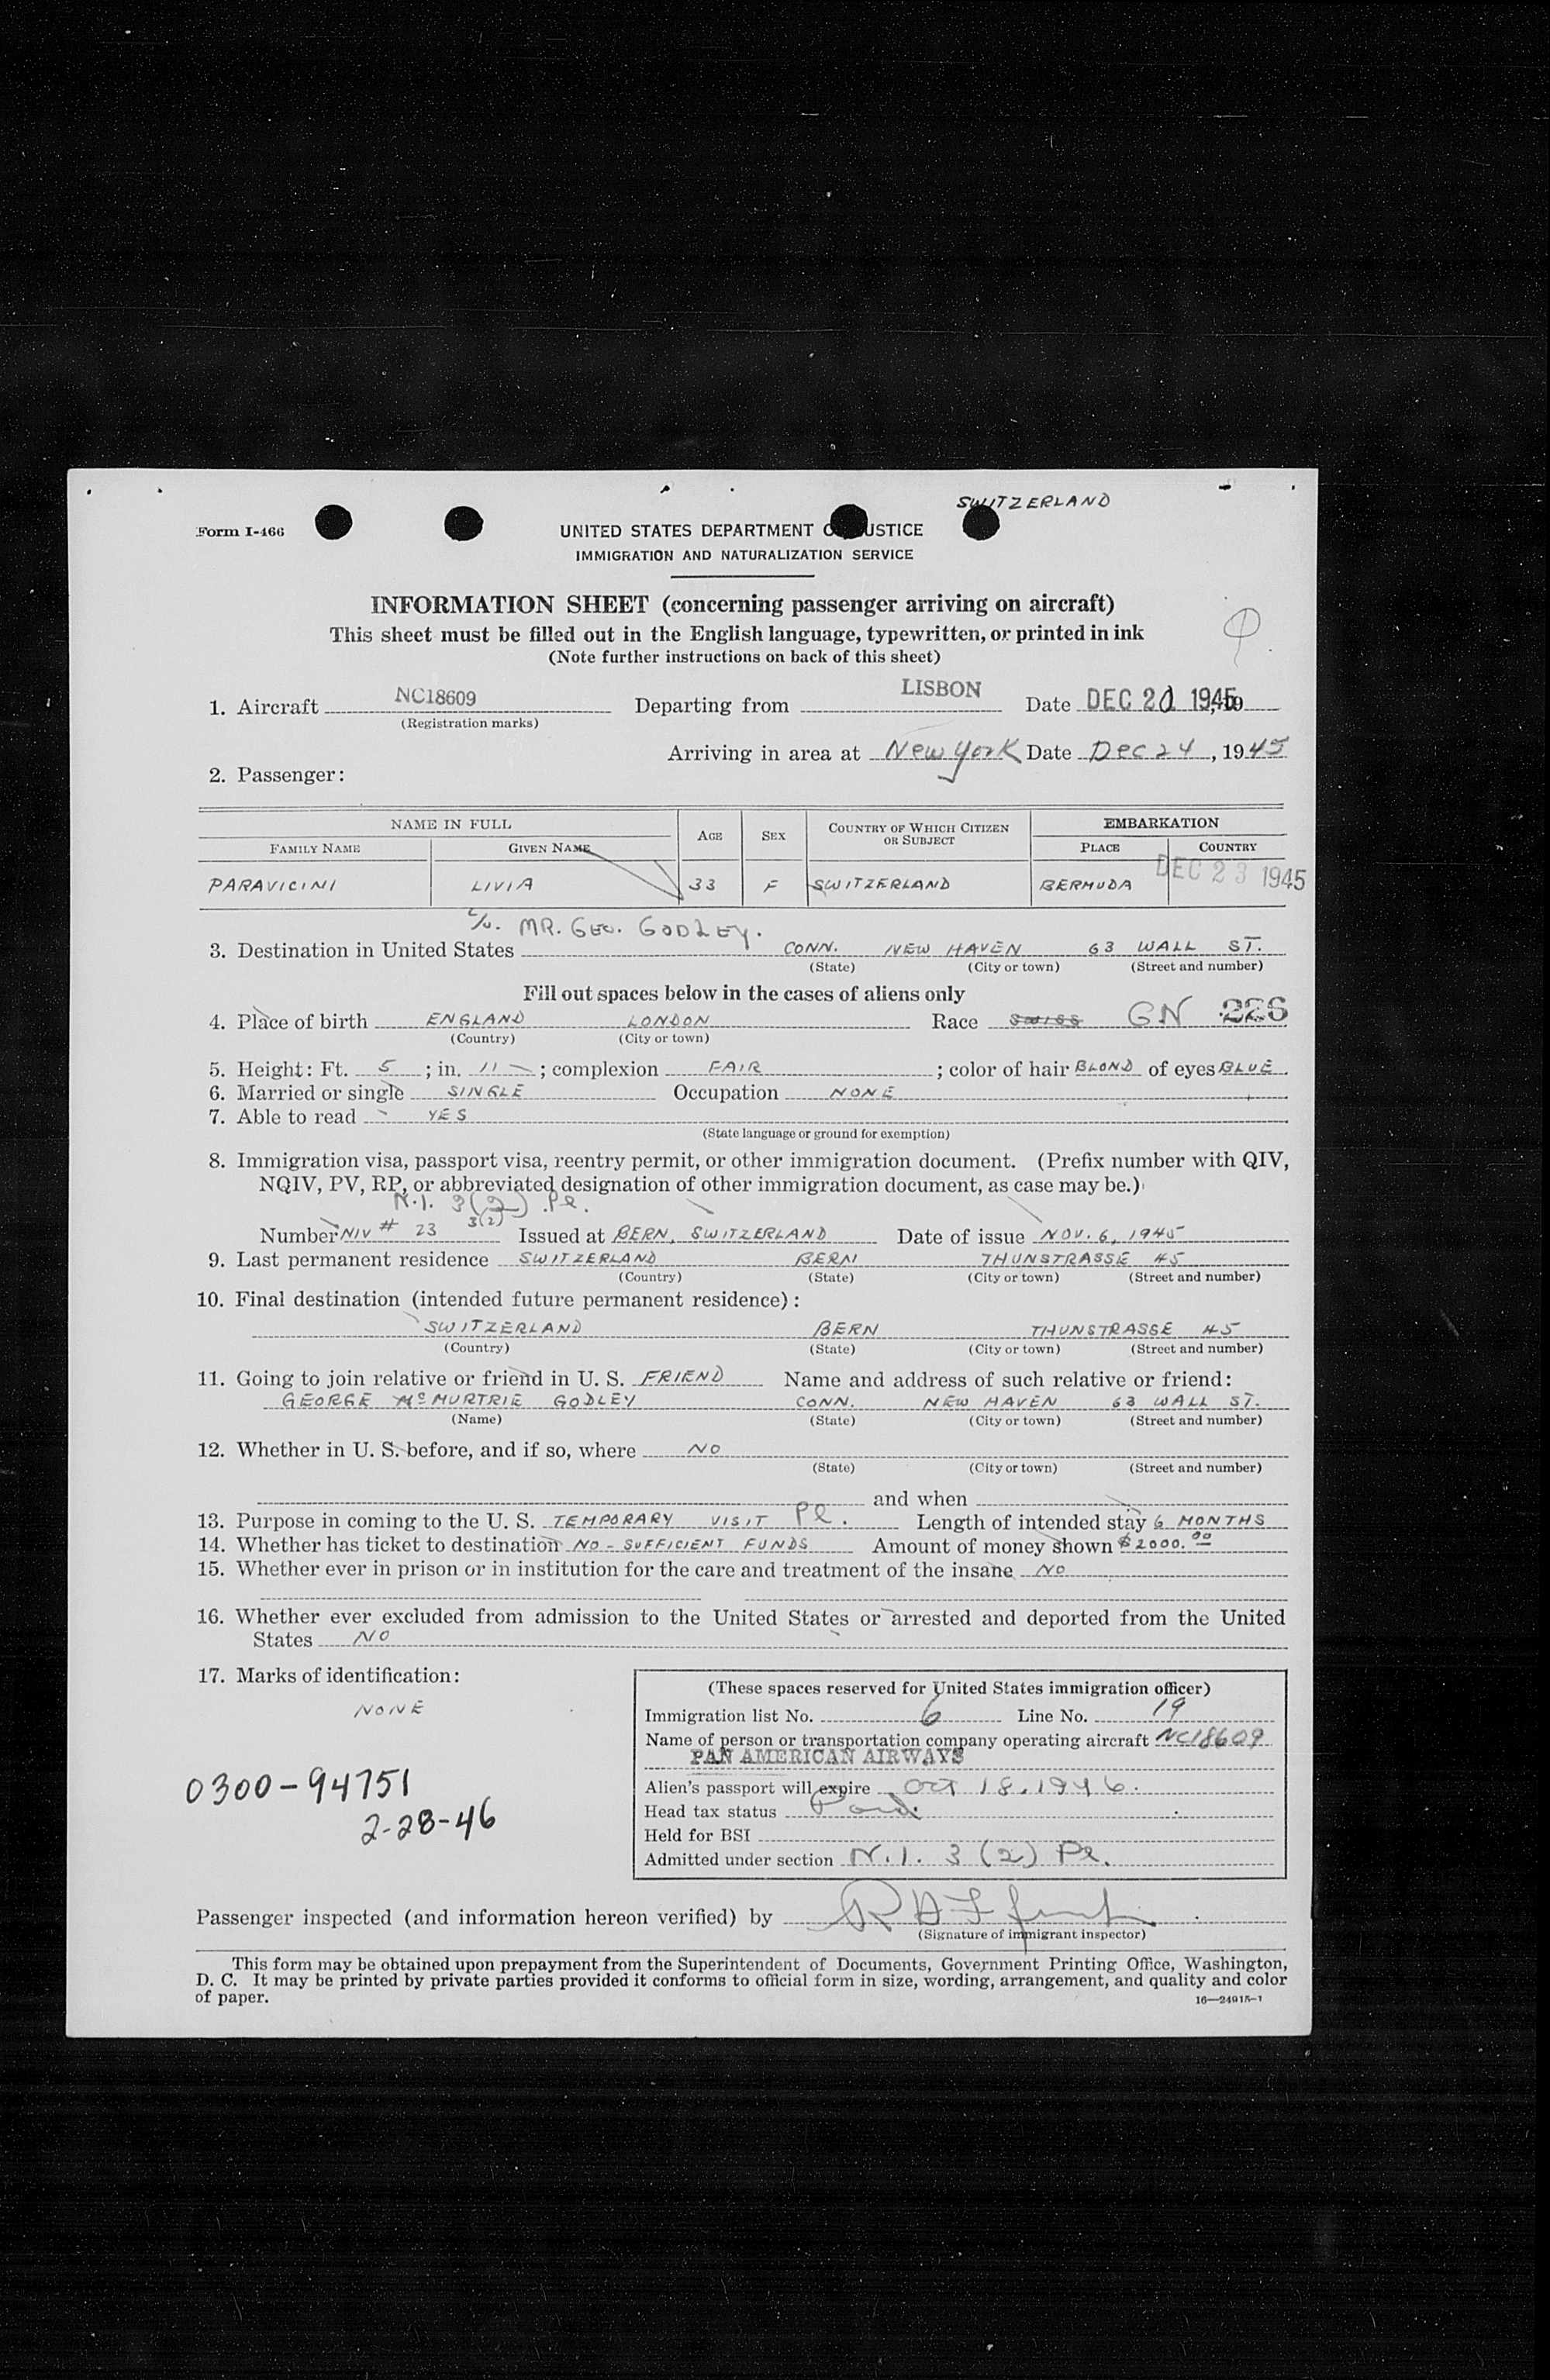 SWITZERLAND
Form I-466
UNITED STATES DEPARTMENT O USTICE
IMMIGRATION AND NATURALIZATION SERVICE
INFORMATION SHEET (concerning passenger arriving on aircraft)
This sheet must be filled out in the English language, typewritten, or printed in ink
(Note further instructions on back of this sheet)
1. Aircraft NC18609 Departing from LISBON Date DEC 21 1945, 19
(Registration marks)
Arriving in area at New York Date Dec 24, 1945
2. Passenger:
NAME IN FULL AGE SEX COUNTRY OF WHICH CITIZEN OR SUBJECT EMBARKATION
FAMILY NAME GIVEN NAME PLACE COUNTRY
PARAVICINI LIVIA 33 F SWITZERLAND BERMUDA DEC 23 1945
c/o. MR. GEO. GODLEY.
3. Destination in United States CONN. NEW HAVEN 63 WALL ST.
(State) (City or town) (Street and number)
Fill out spaces below in the cases of aliens only
4. Place of birth ENGLAND LONDON Race SWISS GN 226
(Country) (City or town)
5. Height: Ft. 5; in. 11; complexion FAIR; color of hair BLOND of eyes BLUE.
6. Married or single SINGLE Occupation NONE
7. Able to read YES
(State language or ground for exemption)
8. Immigration visa, passport visa, reentry permit, or other immigration document. (Prefix number with QIV,
NQIV, PV, RP, or abbreviated designation of other immigration document, as case may be.)
N.I. 3(2) Pl.
Number NIV # 23 3(2) Issued at BERN, SWITZERLAND Date of issue NOV. 6, 1945
9. Last permanent residence SWITZERLAND BERN THUNSTRASSE 45
(Country) (State) (City or town) (Street and number)
10. Final destination (intended future permanent residence):
SWITZERLAND BERN THUNSTRASSE 45
(Country) (State) (City or town) (Street and number)
11. Going to join relative or friend in U. S. FRIEND Name and address of such relative or friend:
GEORGE McMURTRIE GODLEY CONN. NEW HAVEN 63 WALL ST.
(Name) (State) (City or town) (Street and number)
12. Whether in U. S. before, and if so, where NO
(State) (City or town) (Street and number)
and when
13. Purpose in coming to the U. S. TEMPORARY VISIT Pl. Length of intended stay 6 MONTHS
14. Whether has ticket to destination NO - SUFFICIENT FUNDS Amount of money shown $2000.00
15. Whether ever in prison or in institution for the care and treatment of the insane NO
16. Whether ever excluded from admission to the United States or arrested and deported from the United
States NO
17. Marks of identification:
NONE
0300-94751
2-28-46
(These spaces reserved for United States immigration officer)
Immigration list No. 6 Line No. 19
Name of person or transportation company operating aircraft NC18609
PAN AMERICAN AIRWAYS
Alien's passport will expire Oct 18, 1946.
Head tax status Paid.
Held for BSI
Admitted under section N.I. 3 (2) Pl.
Passenger inspected (and information hereon verified) by
(Signature of immigrant inspector)
This form may be obtained upon prepayment from the Superintendent of Documents, Government Printing Office, Washington,
D. C. It may be printed by private parties provided it conforms to official form in size, wording, arrangement, and quality and color
of paper.
16—24915-1